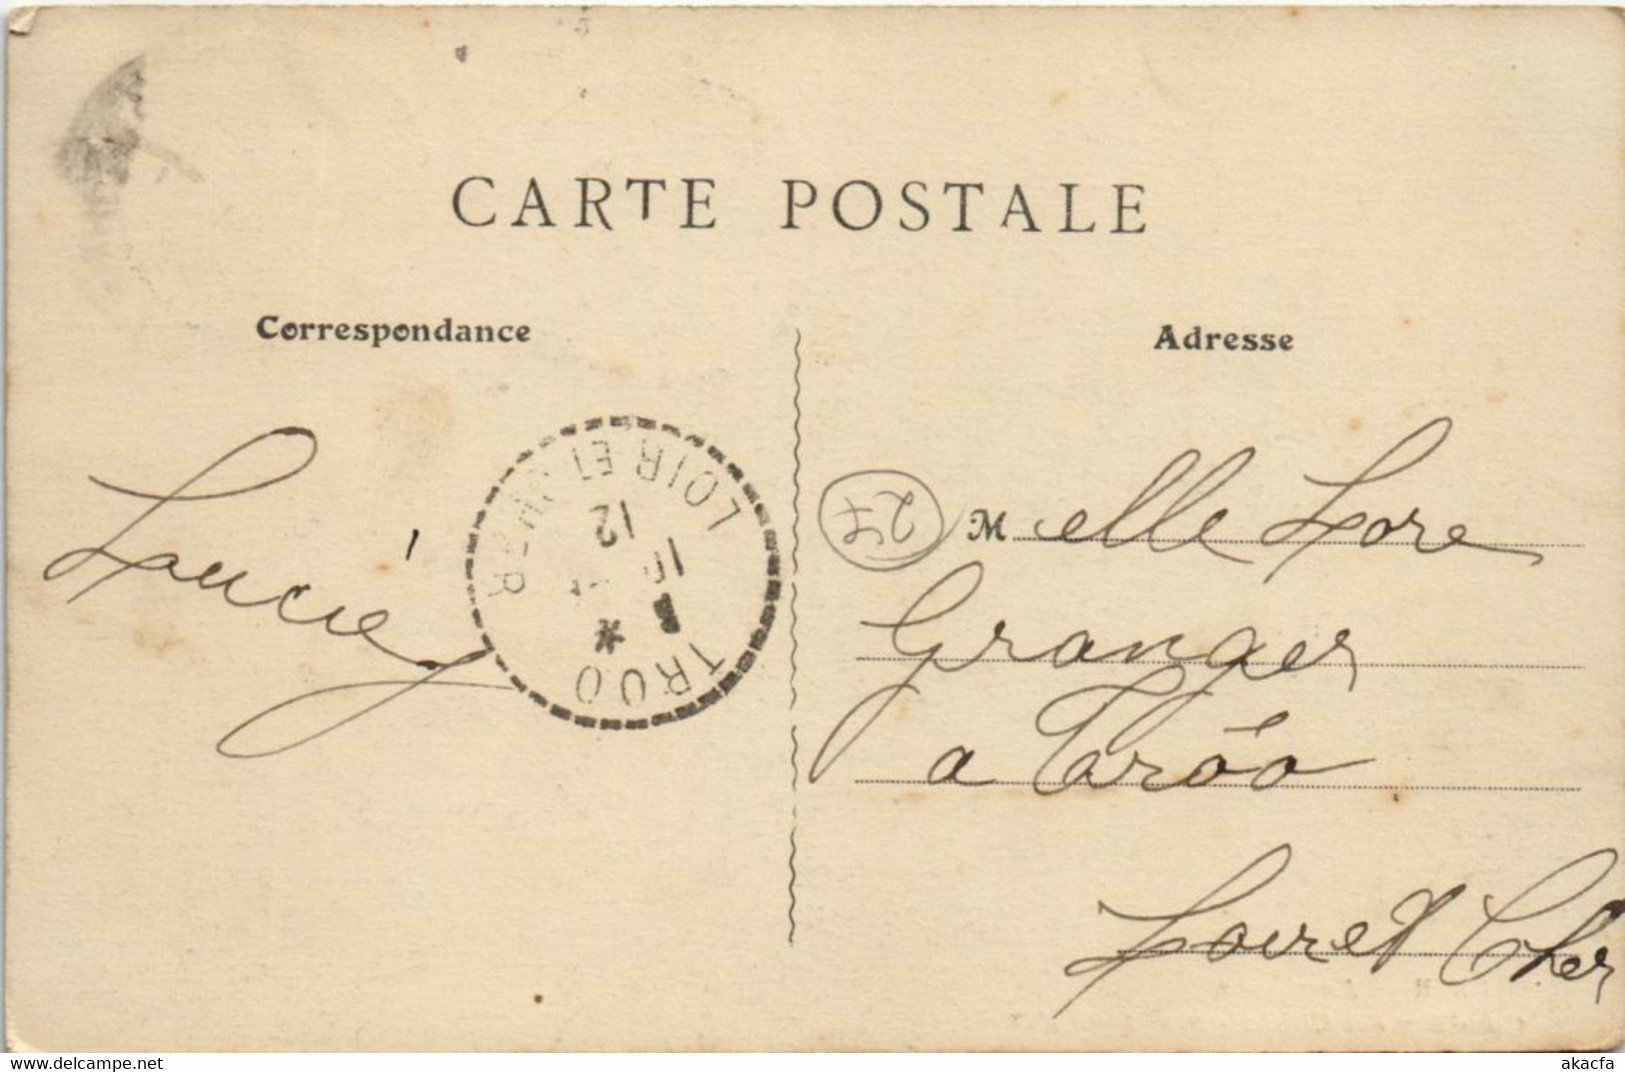 CARTE POSTALE
Correspondance
Adresse
Lucie
27
Melle Lore
Granger
a Tröo
Loir et Cher
TROO
LOIR ET CHER
12
www.delcampe.net
akacfa